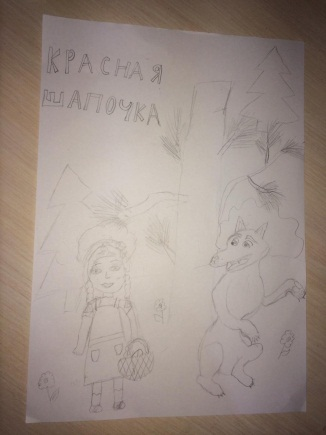 КРАСНАЯ
ШАПОЧКА